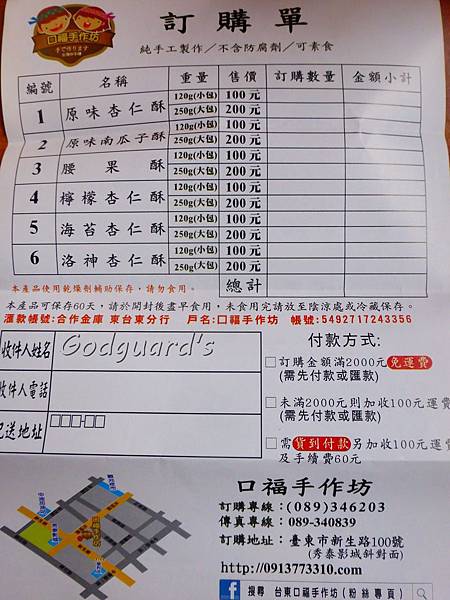 口福手作坊
手で作ります
訂購單
純手工製作／不含防腐劑／可素食
編號 名稱 重量 售價 訂購數量 金額小計
1 原味杏仁酥 120g(小包) 100元
250g(大包) 200元
2 原味南瓜子酥 120g(小包) 100元
250g(大包) 200元
3 腰果酥 120g(小包) 100元
250g(大包) 200元
4 檸檬杏仁酥 120g(小包) 100元
250g(大包) 200元
5 海苔杏仁酥 120g(小包) 100元
250g(大包) 200元
6 洛神杏仁酥 120g(小包) 100元
250g(大包) 200元
總計
本產品使用乾燥劑輔助保存，請勿食用。
本產品可保存60天，請於開封後盡早食用，未食用完請放至陰涼處或冷藏保存。
匯款帳號:合作金庫 東台東分行 戶名:口福手作坊 帳號:5492717243356
收件人姓名 Godguard's
收件人電話
配送地址 □□□-□□
付款方式:
□訂購金額滿2000元免運費
(需先付款或匯款)
□未滿2000元則加收100元運費
(需先付款或匯款)
□需貨到付款另加收100元運費
及手續費60元
口福手作坊
訂購專線：(089)346203
傳真專線：089-340839
訂購地址：臺東市新生路100號
(秀泰影城斜對面)
http://0913773310.com
f 搜尋 台東口福手作坊(粉絲專頁)